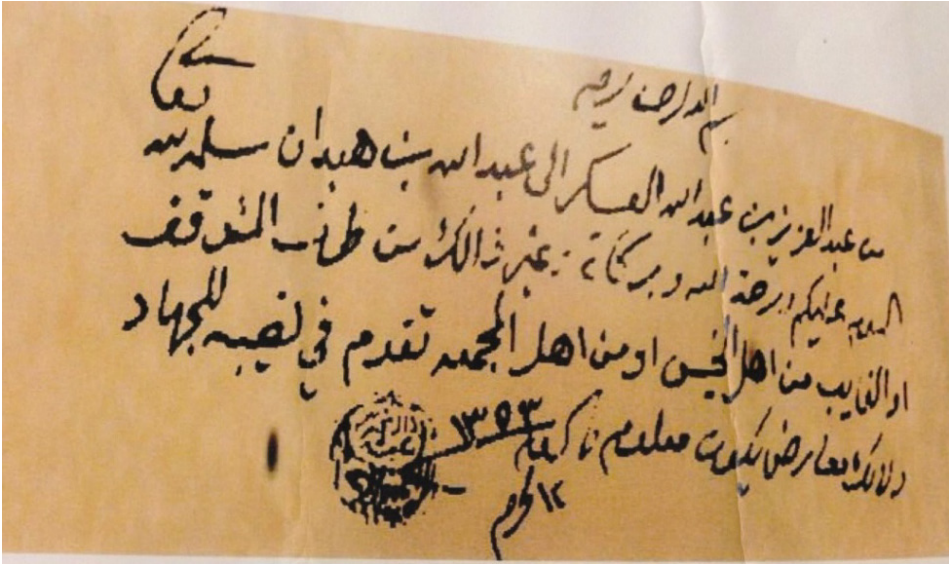 بسم الله الرحمن الرحيم
من عبدالعزيز بن عبدالله العسكر الى عبدالله بن هبدان سلمه الله تعالى
السلام عليكم ورحمة الله وبركاته بعد ذالك من طرف المتوقف
او الغايب من اهل الخيس او من اهل المجمعه تقدم في نصيبه للجهاد
ولالك معارض يكون معلوم والسلام
١٣٥٣
١٢ محرم